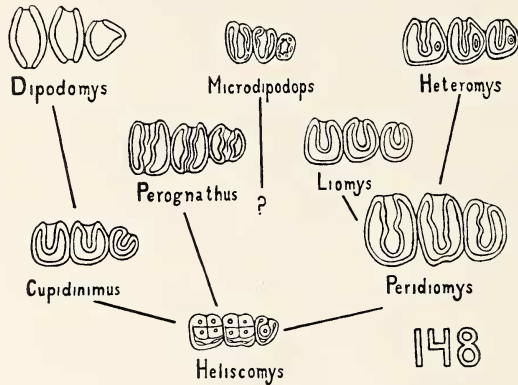 Dipodomys
Microdipodops
Heteromys
Perognathus
Liomys
?
Cupidinimus
Peridiomys
Heliscomys
148